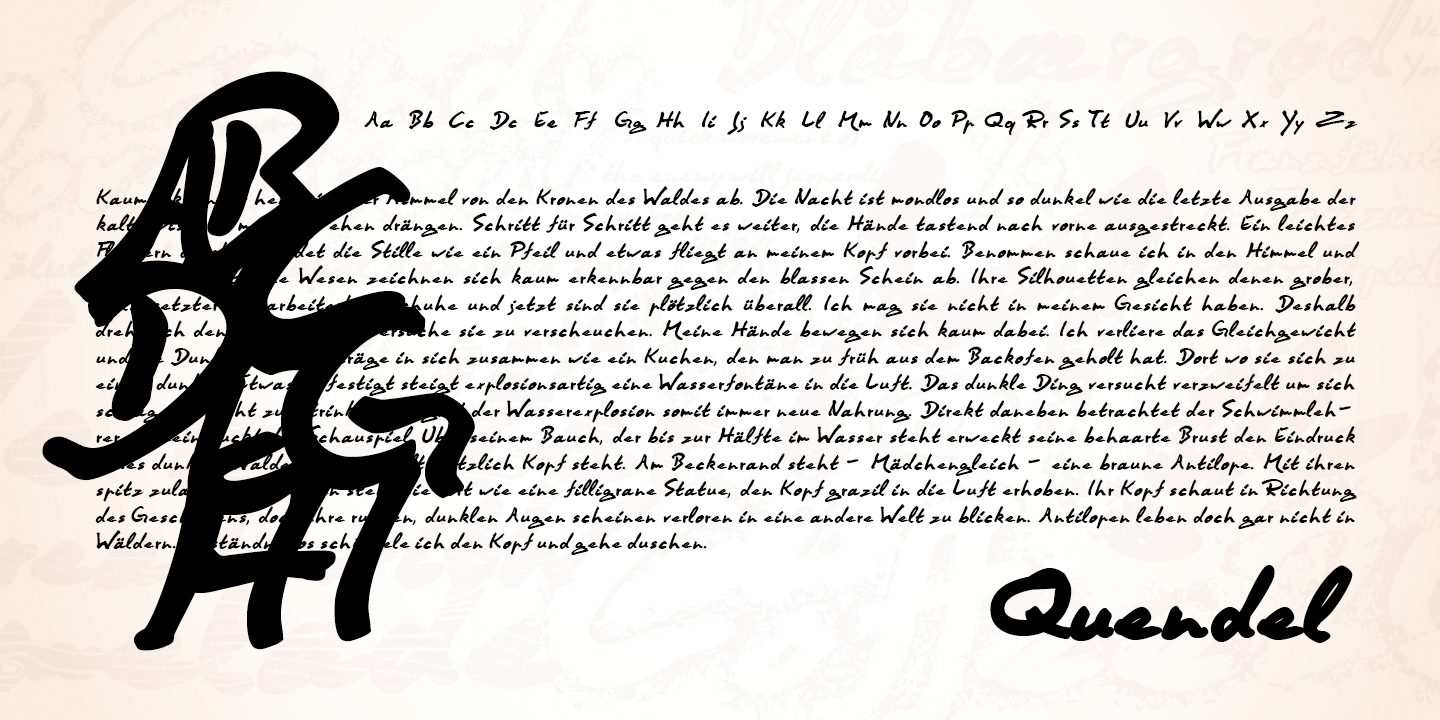 Aa Bb Cc Dc Ee Ff Gg Hh Ii Jj Kk Ll Mm Nn Oo Pp Qq Rr Ss Tt Uu Vv Ww Xx Yy Zz
Kaum von den Kronen des Waldes ab. Die Nacht ist mondlos und so dunkel wie die letzte Ausgabe der
drängen. Schritt für Schritt geht es weiter, die Hände tastend nach vorne ausgestreckt. Ein leichtes
die Stille wie ein Pfeil und etwas fliegt an meinem Kopf vorbei. Benommen schaue ich in den Himmel und
Wesen zeichnen sich kaum erkennbar gegen den blassen Schein ab. Ihre Silhouetten gleichen denen grober,
und jetzt sind sie plötzlich überall. Ich mag sie nicht in meinem Gesicht haben. Deshalb
sie zu verscheuchen. Meine Hände bewegen sich kaum dabei. Ich verliere das Gleichgewicht
in sich zusammen wie ein Kuchen, den man zu früh aus dem Backofen geholt hat. Dort wo sie sich zu
steigt explosionsartig eine Wasserfontäne in die Luft. Das dunkle Ding versucht verzweifelt um sich
der Wasserexplosion somit immer neue Nahrung. Direkt daneben betrachtet der Schwimmleh-
Schauspiel seinem Bauch, der bis zur Hälfte im Wasser steht erweckt seine behaarte Brust den Eindruck
Kopf steht. Am Beckenrand steht - Mädchengleich - eine braune Antilope. Mit ihren
spitz wie eine filligrane Statue, den Kopf grazil in die Luft erhoben. Ihr Kopf schaut in Richtung
des dunklen Augen scheinen verloren in eine andere Welt zu blicken. Antilopen leben doch gar nicht in
Wäldern. ich den Kopf und gehe duschen.
ABCDEFGHI
Quendel